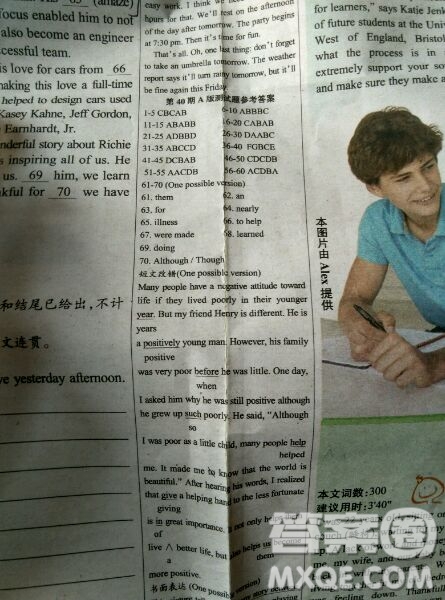 65 (amaze)
focus enabled him to not
also become an engineer
cessful team.
is love for cars from 66
making this love a full-time
helped to design cars used
Kasey Kahne, Jeff Gordon,
Earnhardt, Jr.
nderful story about Richie
s inspiring all of us. He
us. 69 him, we learn
kful for 70 we have
和结尾已给出，不计
文连贯。
ve yesterday afternoon.
easy work. I think we
hours for that. We'll rest on the afternoon
of the day after tomorrow. The party begins
at 7:30 pm. Then it's time for fun.
That's all. Oh, one last thing: don't forget
to take an umbrella tomorrow. The weather
report says it'll turn rainy tomorrow, but it'll
be fine again this Friday.
第 40 期 A 版测试题参考答案
1-5 CBCAB 6-10 ABBBC
11-15 ABABB 16-20 CABAB
21-25 ADBBD 26-30 DAABC
31-35 ABCCD 36-40 FGBCE
41-45 DCBAB 46-50 CDCDB
51-55 AACDB 56-60 ACDBA
61-70 (One possible version)
61. them 62. an
63. for 64. nearly
65. illness 66. to help
67. were made 68. learned
69. doing
70. Although / Though
短文改错(One possible version)
Many people have a negative attitude toward
life if they lived poorly in their younger
year. But my friend Henry is different. He is
years
a positively young man. However, his family
positive
was very poor before he was little. One day,
when
I asked him why he was still positive although
he grew up such poorly. He said, "Although
so
I was poor as a little child, many people help
helped
me. It made me to know that the world is
beautiful." After hearing his words, I realized
that give a helping hand to the less fortunate
giving
is in great importance. not only
of
live ∧ better life, but also helps
them
more positive.
书面表达 (One possible version)
for learners," says Katie Jenk
of future students at the Univ
West of England, Bristol
what the process is in
extremely support your so
and make sure they make a
本图片由 Alex 提供
本文词数：300
建议用时：3'40"
my wife, and
was feeling down. Thankfu
答案圈
MXQE.COM